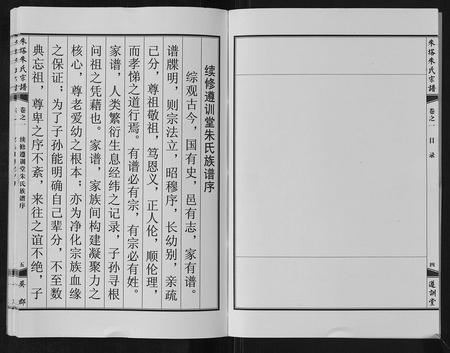 朱塔朱氏宗譜
卷之一
目录
四
遵訓堂
续修遵训堂朱氏族谱序
综观古今，国有史，邑有志，家有谱。
谱牒明，则宗法立，昭穆序，长幼别，亲疏
已分，尊祖敬祖，笃恩义，正人伦，顺伦理，
而孝悌之道行焉。有谱必有宗，有宗必有姓。
家谱，人类繁衍生息经纬之记录，子孙寻根
问祖之凭藉也。家谱，家族间构建凝聚力之
核心，尊老爱幼之根本；亦为净化宗族血缘
之保证；为了子孙能明确自己辈分，不至数
典忘祖，尊卑之序不紊，来往之谊不绝，子
朱塔朱氏宗譜
卷之一
续修遵训堂朱氏族谱序
五
吴郡